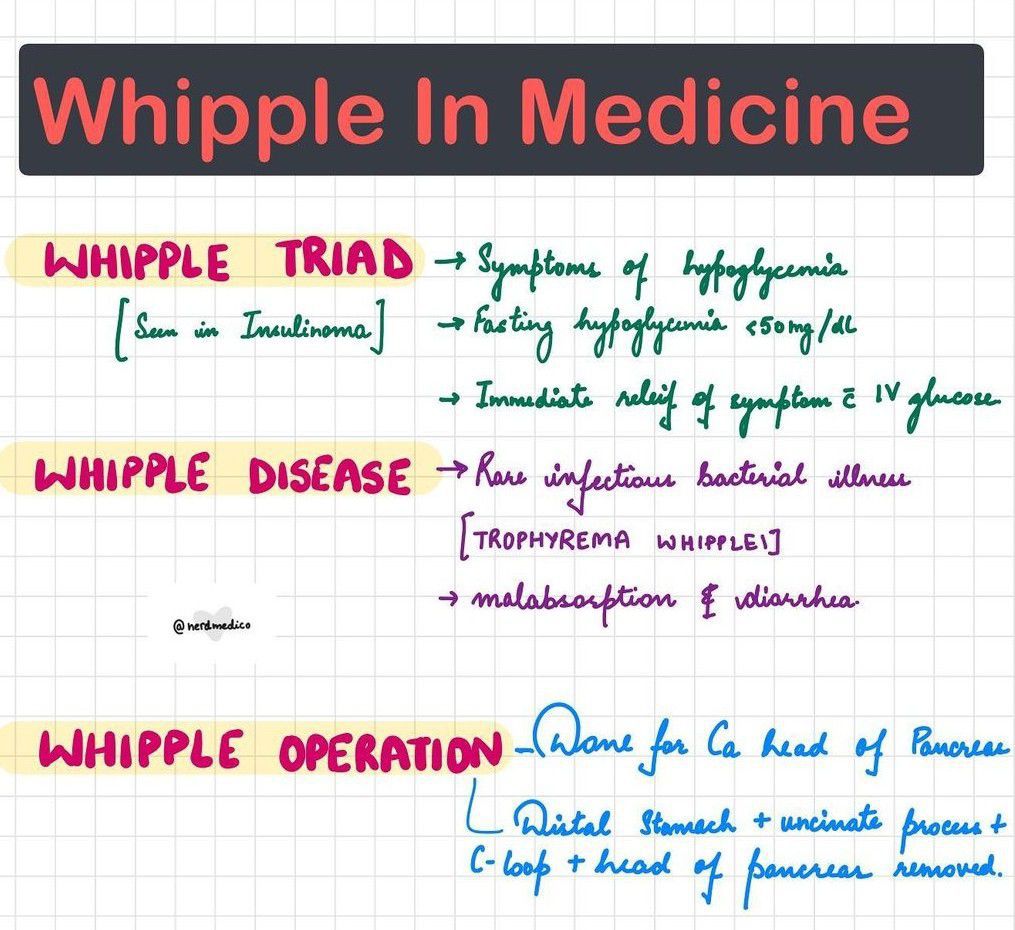 Whipple In Medicine
WHIPPLE TRIAD → Symptoms of hypoglycemia
[Seen in Insulinoma] → Fasting hypoglycemia <50mg/dL
→ Immediate releif of symptom c̄ IV glucose
WHIPPLE DISEASE → Rare infectious bacterial illness
[TROPHYREMA WHIPPLEI]
→ malabsorption & diarrhea.
@nerdmedico
WHIPPLE OPERATION - Done for Ca head of Pancreas
Distal Stomach + uncinate process +
C-loop + head of pancreas removed.